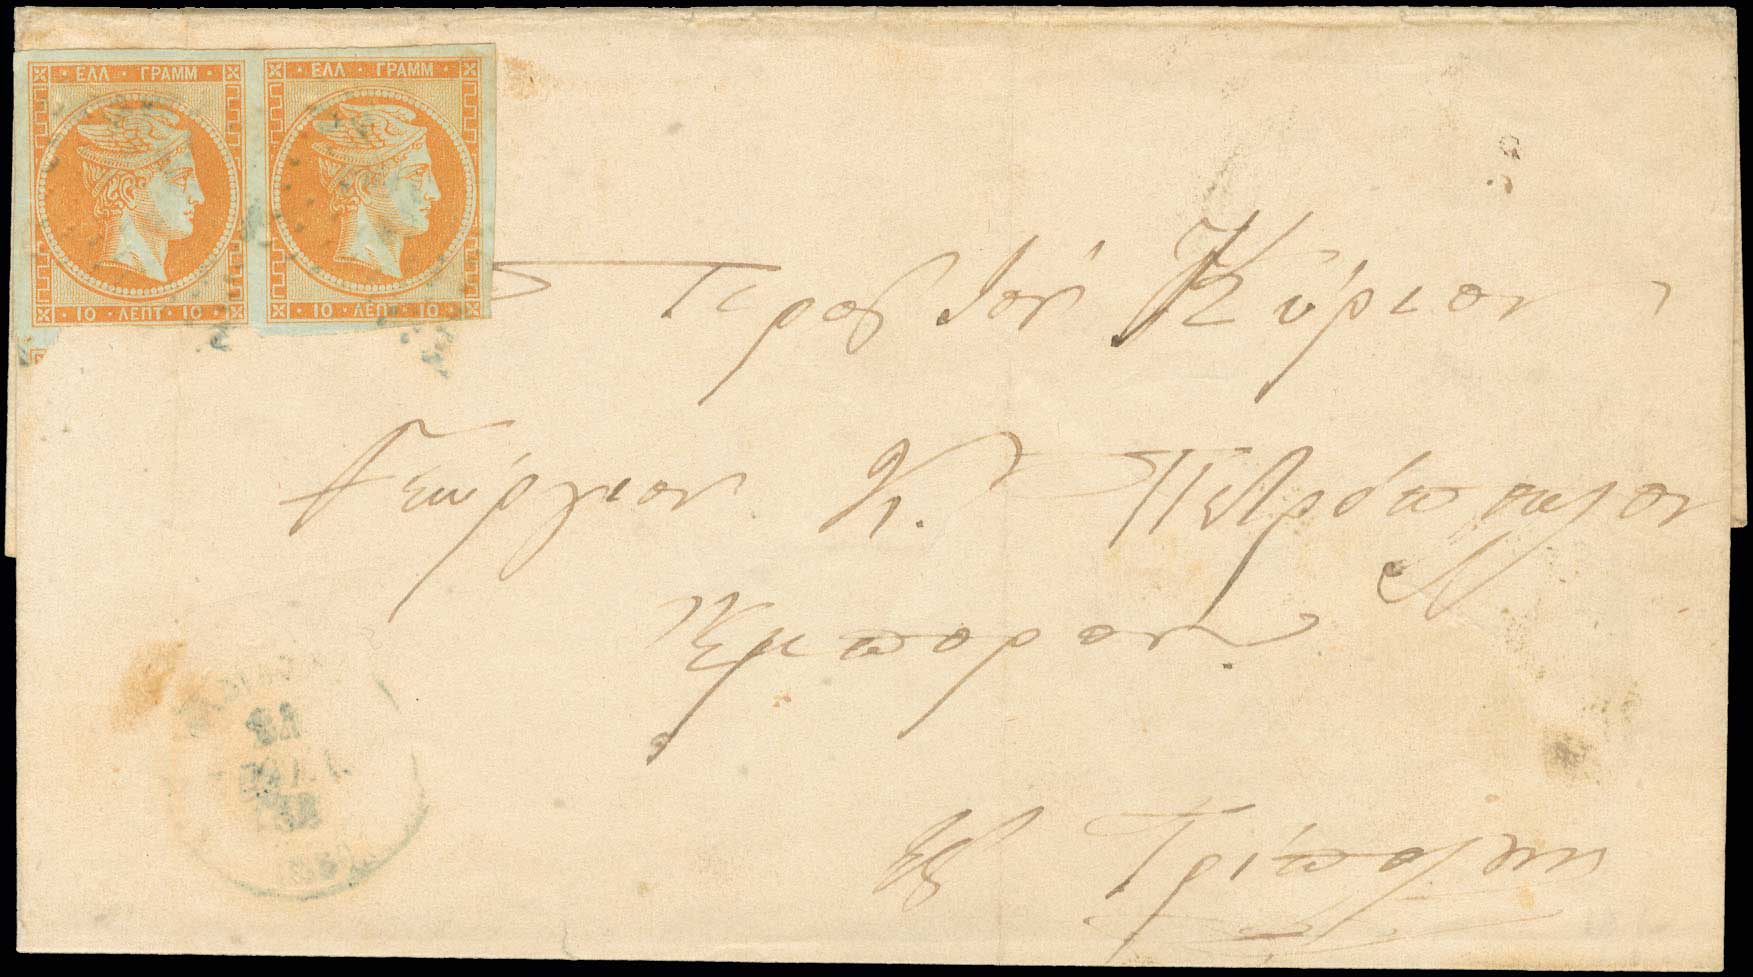 ΕΛΛ · ΓΡΑΜΜ
10 · ΛΕΠΤ · 10
ΕΛΛ · ΓΡΑΜΜ
10 · ΛΕΠΤ · 10
Προς τον Κύριον
Γεώργιον Κ. Πετρόπουλον
Έμπορον
Εις Τρίπολιν